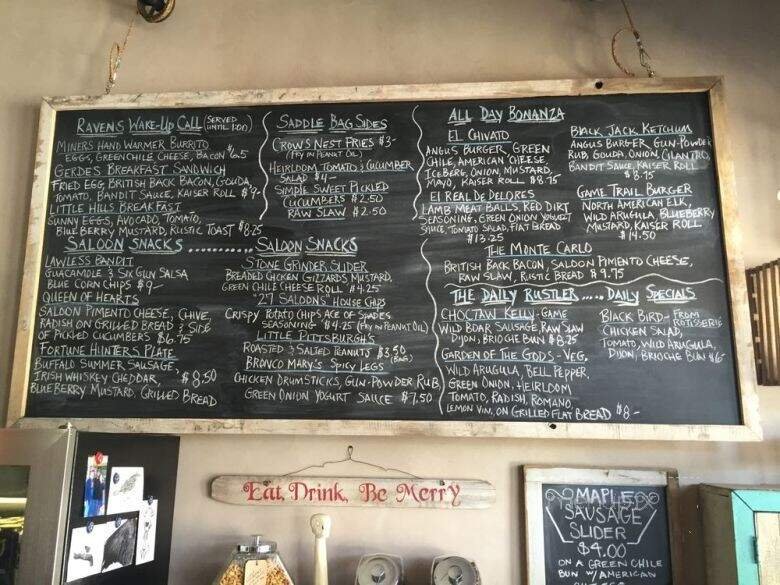 RAVENS WAKE-UP CALL (SERVED UNTIL 1:00)
MINERS HAND WARMER BURRITO
EGGS, GREEN CHILE CHEESE, BACON $6.5
GERDES BREAKFAST SANDWICH
FRIED EGG, BRITISH BACK BACON, GOUDA,
TOMATO, BANDIT SAUCE, KAISER ROLL $9-
LITTLE HILLS BREAKFAST
SUNNY EGGS, AVOCADO, TOMATO,
BLUEBERRY MUSTARD, RUSTIC TOAST $8.25
SADDLE BAG SIDES
CROW'S NEST FRIES $3-
(FRY IN PEANUT OIL)
HEIRLOOM TOMATO & CUCUMBER
SALAD $4-
SIMPLE SWEET PICKLED
CUCUMBERS $2.50
RAW SLAW $2.50
SALOON SNACKS .......... SALOON SNACKS
LAWLESS BANDIT
GUACAMOLE & SIX GUN SALSA
BLUE CORN CHIPS $9-
QUEEN OF HEARTS
SALOON PIMENTO CHEESE, CHIVE,
RADISH ON GRILLED BREAD & SIDE
OF PICKLED CUCUMBERS $6.75
FORTUNE HUNTERS PLATE
BUFFALO SUMMER SAUSAGE,
IRISH WHISKEY CHEDDAR, $8.50
BLUEBERRY MUSTARD, GRILLED BREAD
STONE GRINDER SLIDER
BREADED CHICKEN GIZZARDS, MUSTARD,
GREEN CHILE CHEESE ROLL $4.25
"27 SALOONS" HOUSE CHIPS
CRISPY POTATO CHIPS ACE OF SPADES
SEASONING $4.25 (FRY IN PEANUT OIL)
LITTLE PITTSBURGH'S
ROASTED & SALTED PEANUTS $3.50 (BAG)
BRONCO MARY'S SPICY LEGS
CHICKEN DRUMSTICKS, GUN-POWDER RUB,
GREEN ONION YOGURT SAUCE $7.50
ALL DAY BONANZA
EL CHIVATO
ANGUS BURGER, GREEN
CHILE, AMERICAN CHEESE,
ICEBERG, ONION, MUSTARD,
MAYO, KAISER ROLL $8.75
EL REAL DE DELORES
LAMB MEAT BALLS, RED DIRT
SEASONING, GREEN ONION YOGURT
SAUCE, TOMATO SALAD, FLAT BREAD
$13.25
BLACK JACK KETCHUM
ANGUS BURGER, GUN-POWDER
RUB, GOUDA, ONION, CILANTRO,
BANDIT SAUCE, KAISER ROLL
$8.75
GAME TRAIL BURGER
NORTH AMERICAN ELK,
WILD ARUGULA, BLUEBERRY
MUSTARD, KAISER ROLL
$14.50
THE MONTE CARLO
BRITISH BACK BACON, SALOON PIMENTO CHEESE,
RAW SLAW, RUSTIC BREAD $9.75
THE DAILY RUSTLER ..... DAILY SPECIALS
CHOCTAW KELLY-GAME
WILD BOAR SAUSAGE, RAW SLAW
DIJON, BRIOCHE BUN $8.25
GARDEN OF THE GODS - VEG.
WILD ARUGULA, BELL PEPPER,
GREEN ONION, HEIRLOOM
TOMATO, RADISH, ROMANO,
LEMON VIN, ON GRILLED FLAT BREAD $8-
BLACK BIRD - FROM ROTISSERIE
CHICKEN SALAD,
TOMATO, WILD ARUGULA,
DIJON, BRIOCHE BUN $6-
Eat, Drink, Be Merry
MAPLE
SAUSAGE
SLIDER
$4.00
ON A GREEN CHILE
BUN W/AMERICAN